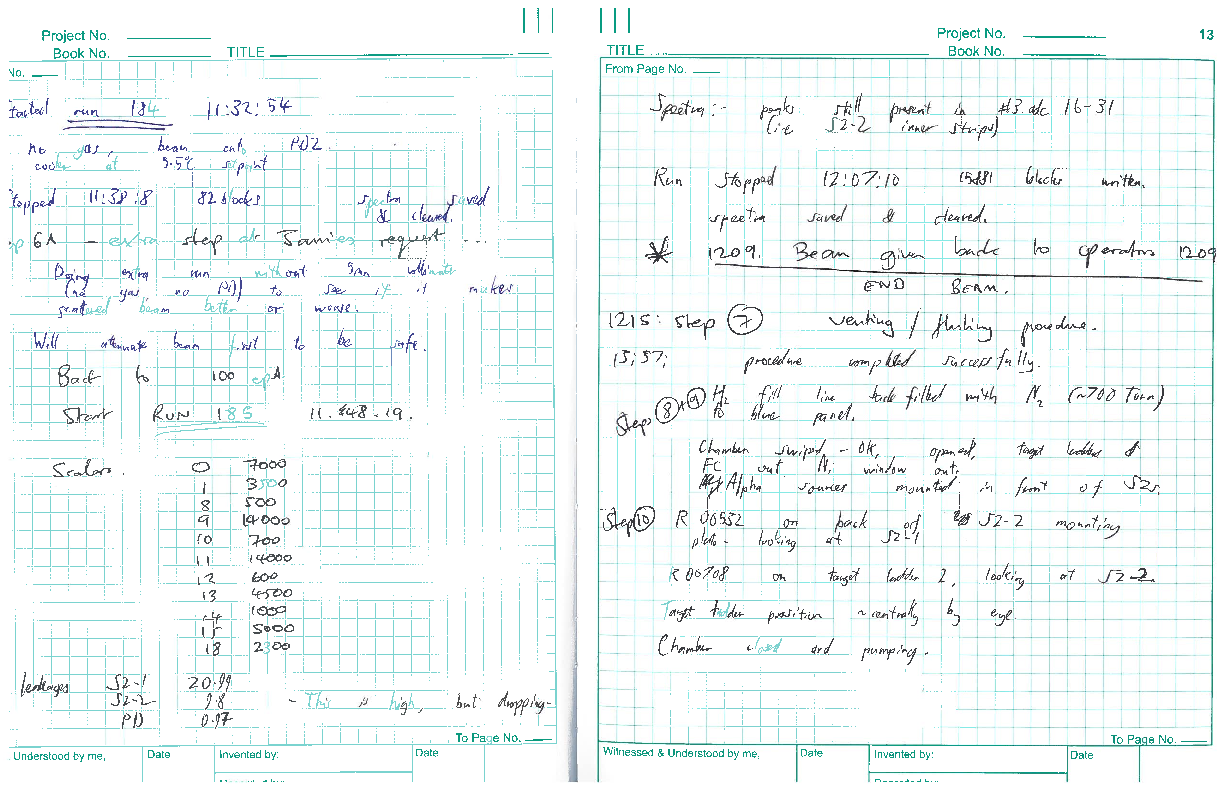 Project No.
Book No.
TITLE
No.
Started run 184 11:32:54
no gas, beam onto PD2.
cooler at 5.5% setpoint
Stopped 11:38:8 82 blocks spectra saved
& cleared.
ep 6A - extra step at Jamies request...
Doing extra run without 5mm collimator
(no gas no PD) to see if it makes
scattered beam better or worse.
Will attenuate beam first to be safe.
Back to 100 epA
Start RUN 185 11:48:19.
Scalers. 0 7000
1 3500
8 500
9 14000
10 700
11 14000
12 600
13 4500
14 1000
15 5000
18 2300
leakages S2-1 20.99
S2-2 9.8 - This is high, but dropping-
PD 0.97
To Page No.
Understood by me,
Date
Invented by:
Date
Project No.
Book No.
13
TITLE
From Page No.
Spectra:- peaks still present in #3.adc 16-31
(ie S2-2 inner strips)
Run Stopped 12:07:10 15881 blocks written.
spectra saved & cleared.
* 1209. Beam given back to operators 1209
END BEAM.
1215: Step 7 venting / flushing procedure.
15:57; procedure completed successfully.
Steps 8 + 9 H2 fill line back filled with N2 (~700 Torr)
to blue panel.
Chamber swiped - OK, opened, target ladder &
FC out Ni window out.
Alpha sources mounted in front of S2s.
Step 10 R 00532 on back of S2-2 mounting
plate - looking at S2-1
R00708 on target ladder 2, looking at S2-2.
Target ladder position ~centrally by eye
Chamber closed and pumping.
To Page No.
Witnessed & Understood by me,
Date
Invented by:
Date